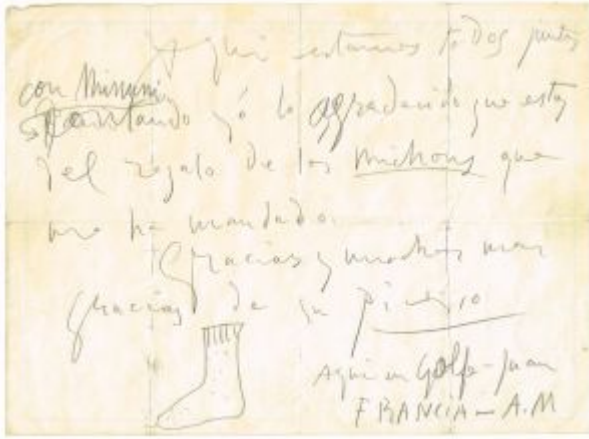 Aqui estamos todos juntos
con Minuni
Cantando yó lo aggradecido que estoy
del regalo de los michons que
me ha mandado
Gracias y muchas mas
gracias de su
Aqui en Golfe-Juan
FRANCIA - A.M